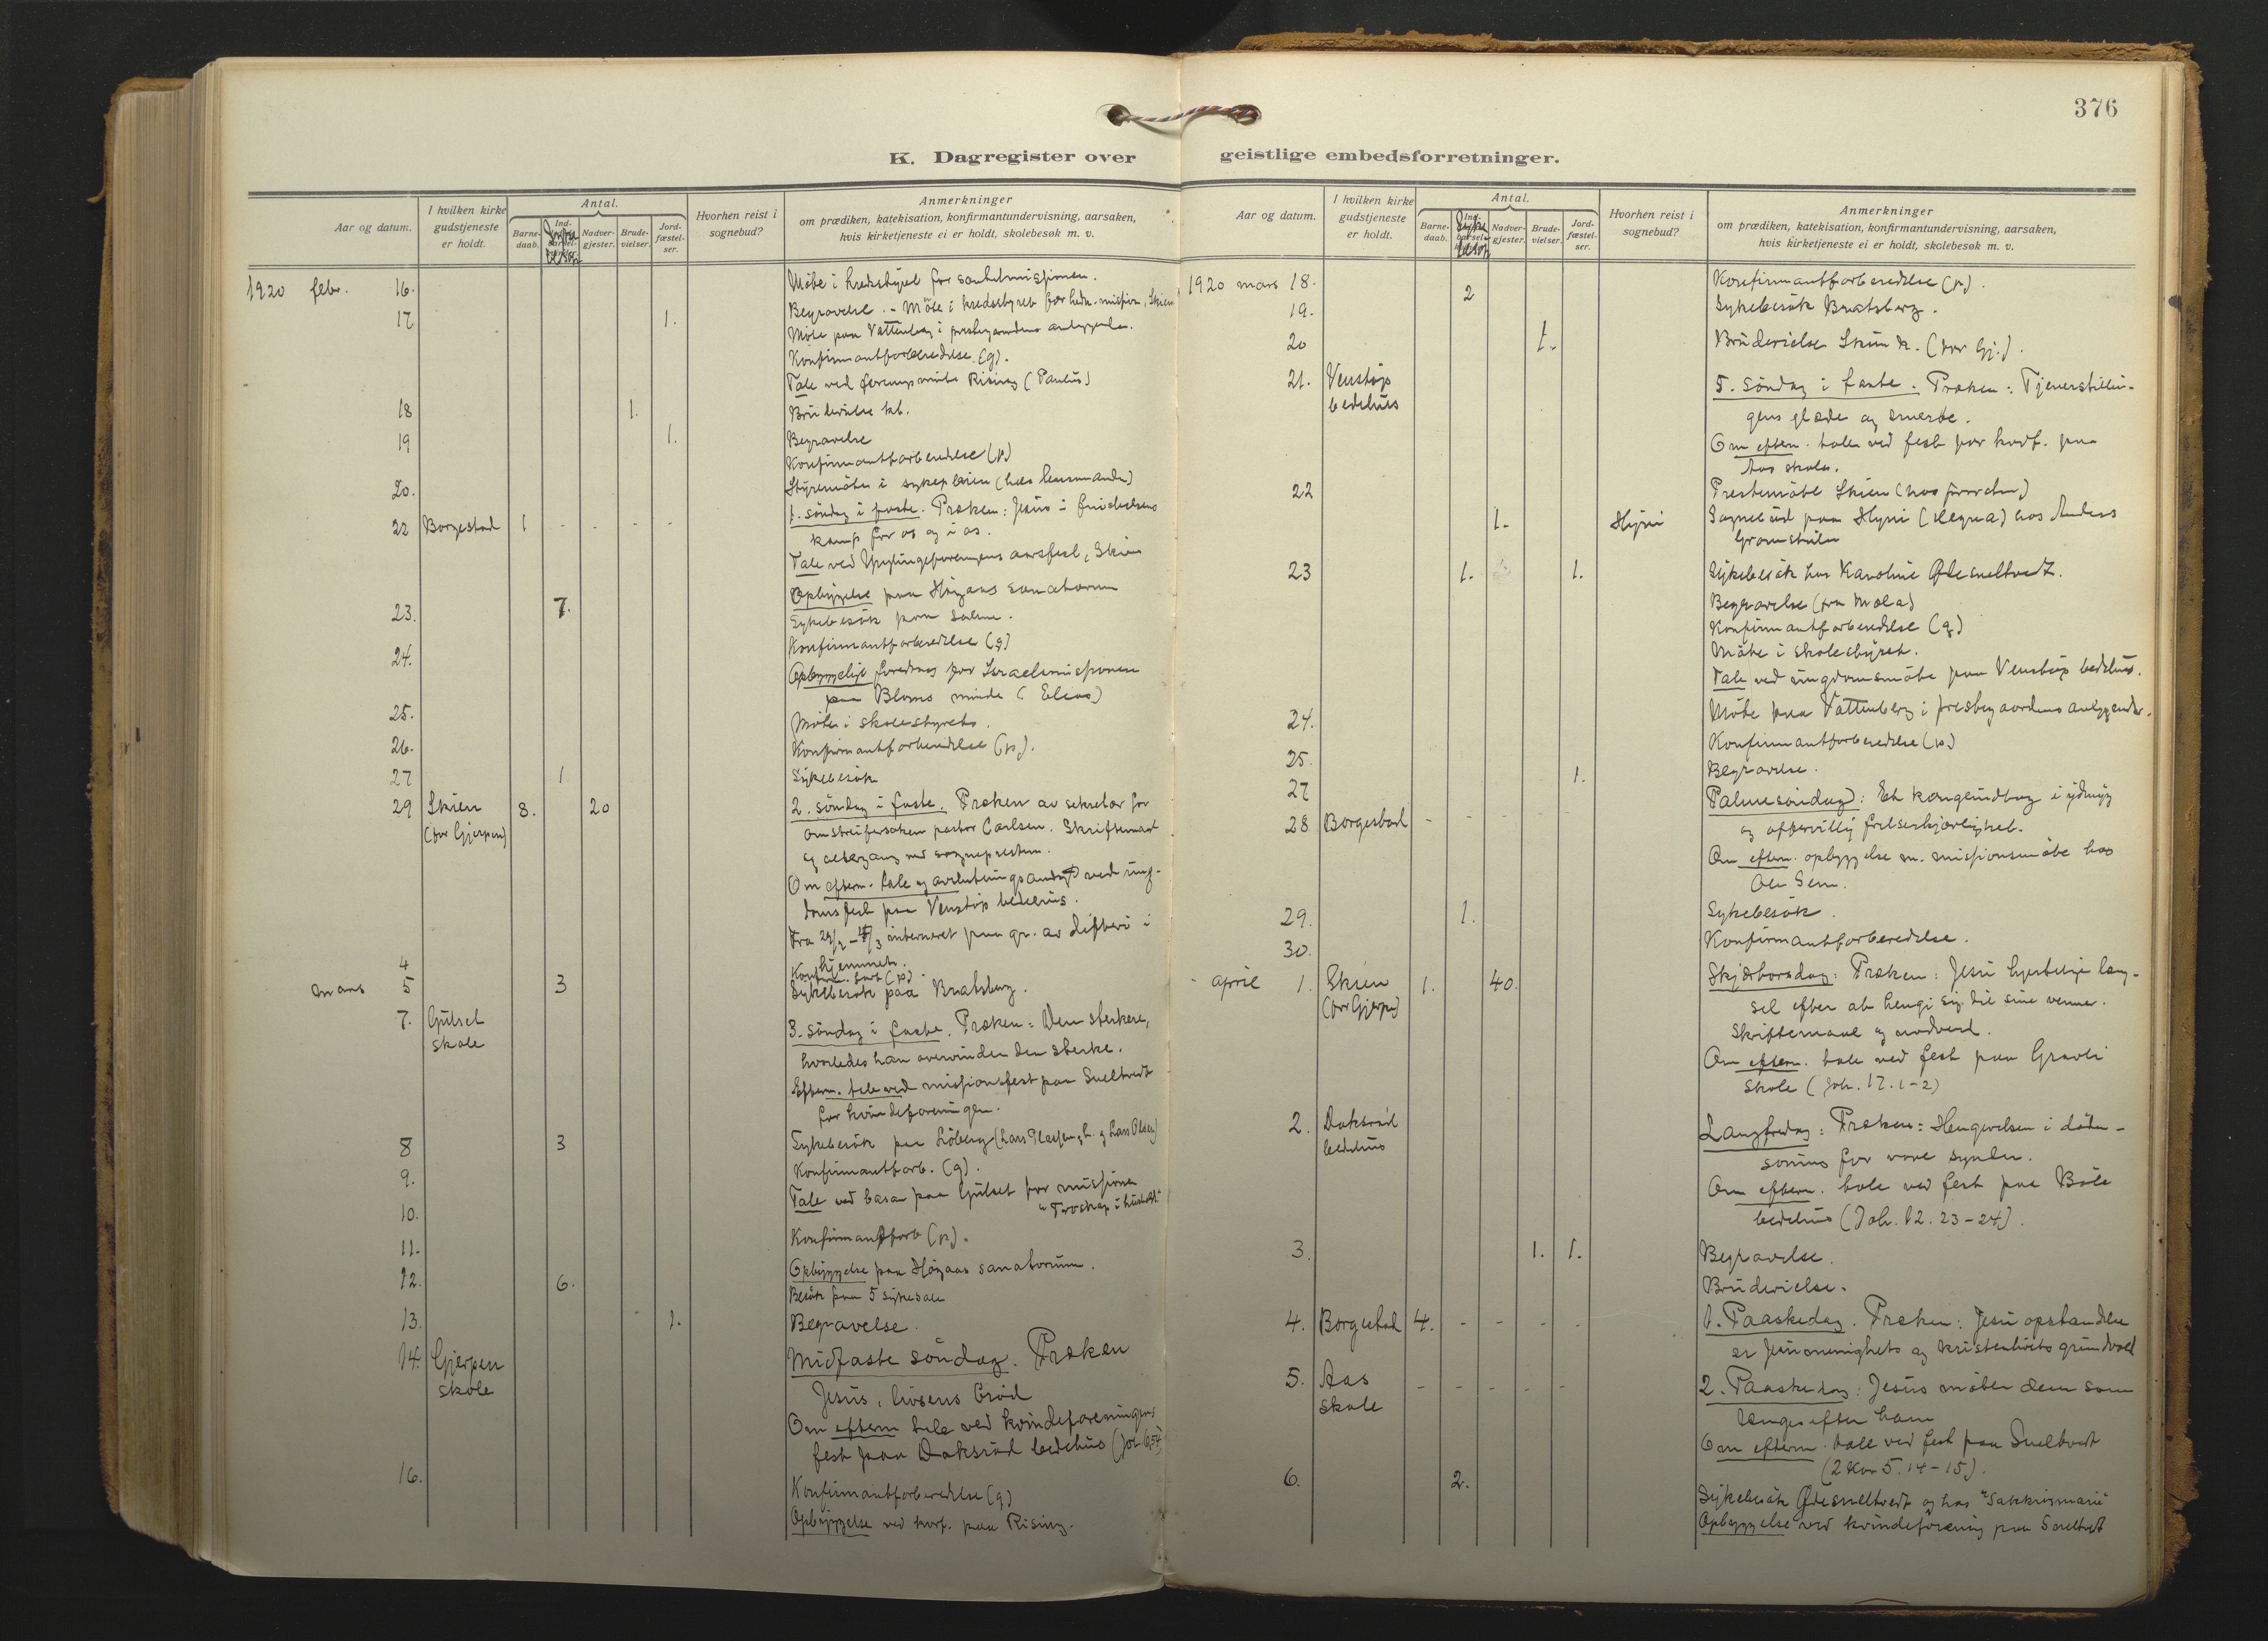 376
K. Dagregister over geistlige embedsforretninger.
Aar og datum.
I hvilken kirke gudstjeneste er holdt.
Antal.
Barne-daab.
Nadver-gjester.
Brude-vielser.
Jord-fæstel-ser.
Hvorhen reist i sognebud?
Anmerkninger
om prædiken, katekisation, konfirmantundervisning, aarsaken,
hvis kirketjeneste ei er holdt, skolebesøk m. v.
1920 febr. 16. Møte i kredsstyret for santalmissionen.
17 1. Begravelse. - Møte i kredsstyret for hedn. mission, Skien
Møte paa Vattenberg i prestegaardens anliggender.
Konfirmantforberedelse (g).
Tale ved foreningsmøte Rising (Paulus)
18 1. Brudevielse
19 1. Begravelse
Konfirmantforberedelse (p)
20. Styremøte i sykepleien (hos lensmanden)
22 Borgestad 1 - - - - 1. søndag i faste. Præken: Jesus i
kamp for os og i os.
Tale ved Ynglingeforeningens aarsfest, Skien
Opbyggelse paa Høyaas sanatorium
23. 7. Sykebesøk paa salene.
Konfirmantforberedelse (g)
24. Opbyggelig foredrag for Israelsmissionen
paa Bloms minde (Elias)
25. Møte i skolestyret.
26. Konfirmantforberedelse (p).
27 1 Sykebesøk
29 Skien 8. 20 2. søndag i faste. Præken av sekretær for
(for Gjerpen) omstreifersaken pastor Carlsen. Skriftemaal
og altergang ved sognepresten.
Om efterm. tale og avslutningsandagt ved ung-
domsfest paa Venstøp bedehus.
Fra 29/2 - 4/3 interneret paa gr. av difteri i
hjemmet.
4 Konfirm. forb (p).
mars 5 3 Sykebesøk paa Bratsberg.
7. Gulset 3. søndag i faste. Præken: Den sterkere,
skole hvorledes han overvinder den sterke.
Efterm. tale ved missionsfest paa Sneltvedt
for kvindeforeningen.
8 3 Sykebesøk paa Løberg
9. Konfirmantforb. (g).
10. Tale ved basar paa Gulset for missionen
11. Konfirmantforb (p).
12. 6. Opbyggelse paa Høyaas sanatorium.
Besøk paa 5 sykesale
13. 1. Begravelse.
14. Gjerpen Midfaste søndag. Præken
skole Jesus, livsens brød
Om efterm tale ved kvindeforeningens
fest paa Doksrød bedehus (Joh 6,54)
16. Konfirmantforberedelse (g)
Opbyggelse ved kvf. paa Rising.
Aar og datum.
I hvilken kirke gudstjeneste er holdt.
Antal.
Barne-daab.
Nadver-gjester.
Brude-vielser.
Jord-fæstel-ser.
Hvorhen reist i sognebud?
Anmerkninger
om prædiken, katekisation, konfirmantundervisning, aarsaken,
hvis kirketjeneste ei er holdt, skolebesøk m. v.
1920 mars 18. Konfirmantforberedelse (p).
19. 2 Sykebesøk Bratsberg.
20 1. Brudevielse Skien k. (for Gj.).
21. Venstøp 5. søndag i faste. Præken: Tjenerstillin-
bedehus gens glæde og smerte.
Om efterm. tale ved fest for kvdf. paa
Aas skole.
22 Prestemøte Skien (hos provsten)
1. Hyni Sognebud paa Hyni hos Anders
Gromstulen
23 1. 1. Sykebesøk hos Karoline Ødesneltvedt.
Begravelse (fra Mæla)
Konfirmantforberedelse (g)
Møte i skolestyret.
Tale ved ungdomsmøte paa Venstøp bedehus.
24. Møte paa Vattenberg i prestegaardens anliggender.
25. Konfirmantforberedelse (p)
27 1. Begravelse.
28 Borgestad - - - - Palmesøndag: Et kongeindtog i ydmyg
og offervillig frelserkjærlighet.
Om efterm. opbyggelse m. missionsmøte hos
Ole Sem.
29. 1. Sykebesøk.
30. Konfirmantforberedelse.
- april 1. Skien 1. 40. Skjærtorsdag: Præken: Jesu hjertelige læng-
(for Gjerpen) sel efter at hengi sig til sine venner.
Skriftemaal og nadverd.
Om efterm. tale ved fest paa Gravli
skole (Joh. 17.1-2)
2. Doksrød Langfredag: Præken: Hengivelsen i døden -
bedehus soning for vore synder.
Om efterm. tale ved fest paa Bøle
bedehus (Joh. 12. 23-24).
3. 1. 1. Begravelse.
Brudevielse.
4. Borgestad 4. - - - - 1. Paaskedag. Præken: Jesu opstandelse
er Jesu menighets og kristenlivets grundvold
5. Aas - - - - - 2. Paaskedag: Jesus møter dem som
skole længes efter ham
Om efterm. tale ved fest paa Sneltvedt
(2 Kor 5. 14-15).
6. 2. Sykebesøk Ødesneltvedt og hos
Opbyggelse ved kvindeforening paa Sneltvedt